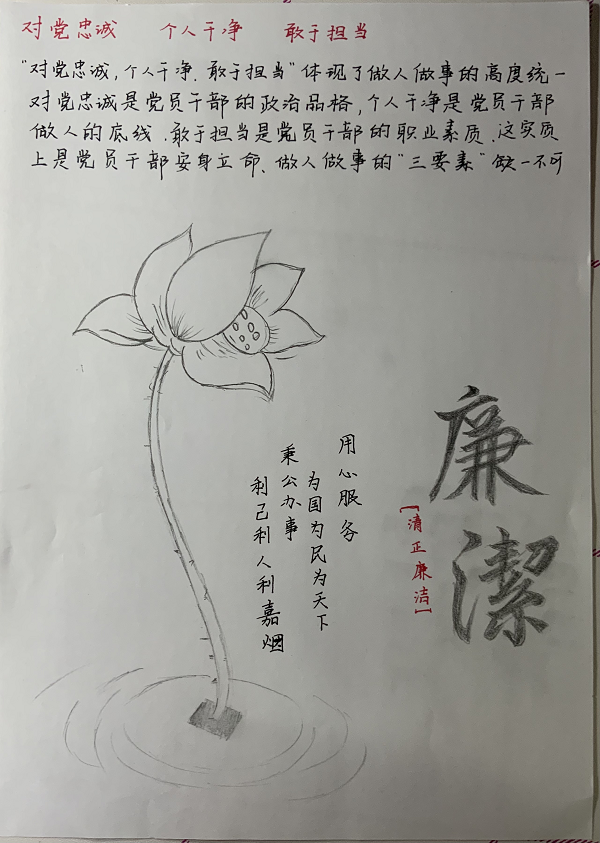 对党忠诚 个人干净 敢于担当
"对党忠诚,个人干净、敢于担当"体现了做人做事的高度统一
对党忠诚是党员干部的政治品格,个人干净是党员干部
做人的底线、敢于担当是党员干部的职业素质、这实质
上是党员干部安身立命、做人做事的"三要素"缺一不可
用心服务
为国为民为天下
秉公办事
利己利人利嘉烟
廉潔
【清正廉洁】